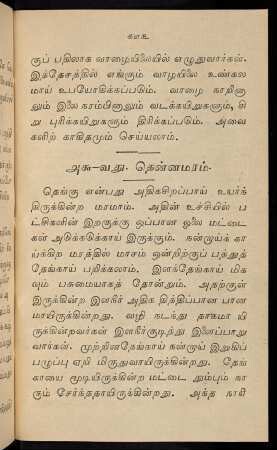 ௧௮௧
ருப் பதிலாக வாழையிலேயில் எழுதுவார்கள்.
இத்தேசத்தில் எங்கும் வாழயிலே உண்கல
மாய் உபயோகிக்கப்படும். வாழை காறினு
லும் இலே கரம்பினாலும் வடக்கயிறுகளும், சி
று புரிக்கயிறுகளும் திரிக்கப்படும். அவை
களிற் காகிதமும் செய்யலாம்.
அ௯-வது. தென்னமரம்.
தெங்கு என்பது அதிகசிறப்பாய் உயர்ந்
திருக்கின்ற மரமாம். அதின் உச்சியில் ப
ட்சிகளின் இறகுக்கு ஒப்பான ஓலை மட்டை
கள் அடுக்கடுக்காய் இருக்கும். நன்றாய்க் கா
ய்க்கிற மரத்தில் மாசம் ஒன்றிற்குப் பத்துத்
தேங்காய் பறிக்கலாம். இளந்தேங்காய் மிக
வும் பசுமையாகத் தோன்றும். அதற்குள்
இருக்கின்ற இளநீர் அதிக தித்திப்பான பான
மாயிருக்கின்றது. வழி நடந்து தாகமா யி
ருக்கின்றவர்கள் இளநீர்குடித்து இளைப்பாறு
வார்கள். முற்றினதேங்காய் நன்றாய் இறுகிப்
பழுப்பு ஏறி மிருதுவாயிருக்கின்றது. தேங்
காயை மூடியிருக்கின்ற மட்டை தும்பும் கா
ரும் சேர்ந்ததாயிருக்கின்றது. அந்த நாரி